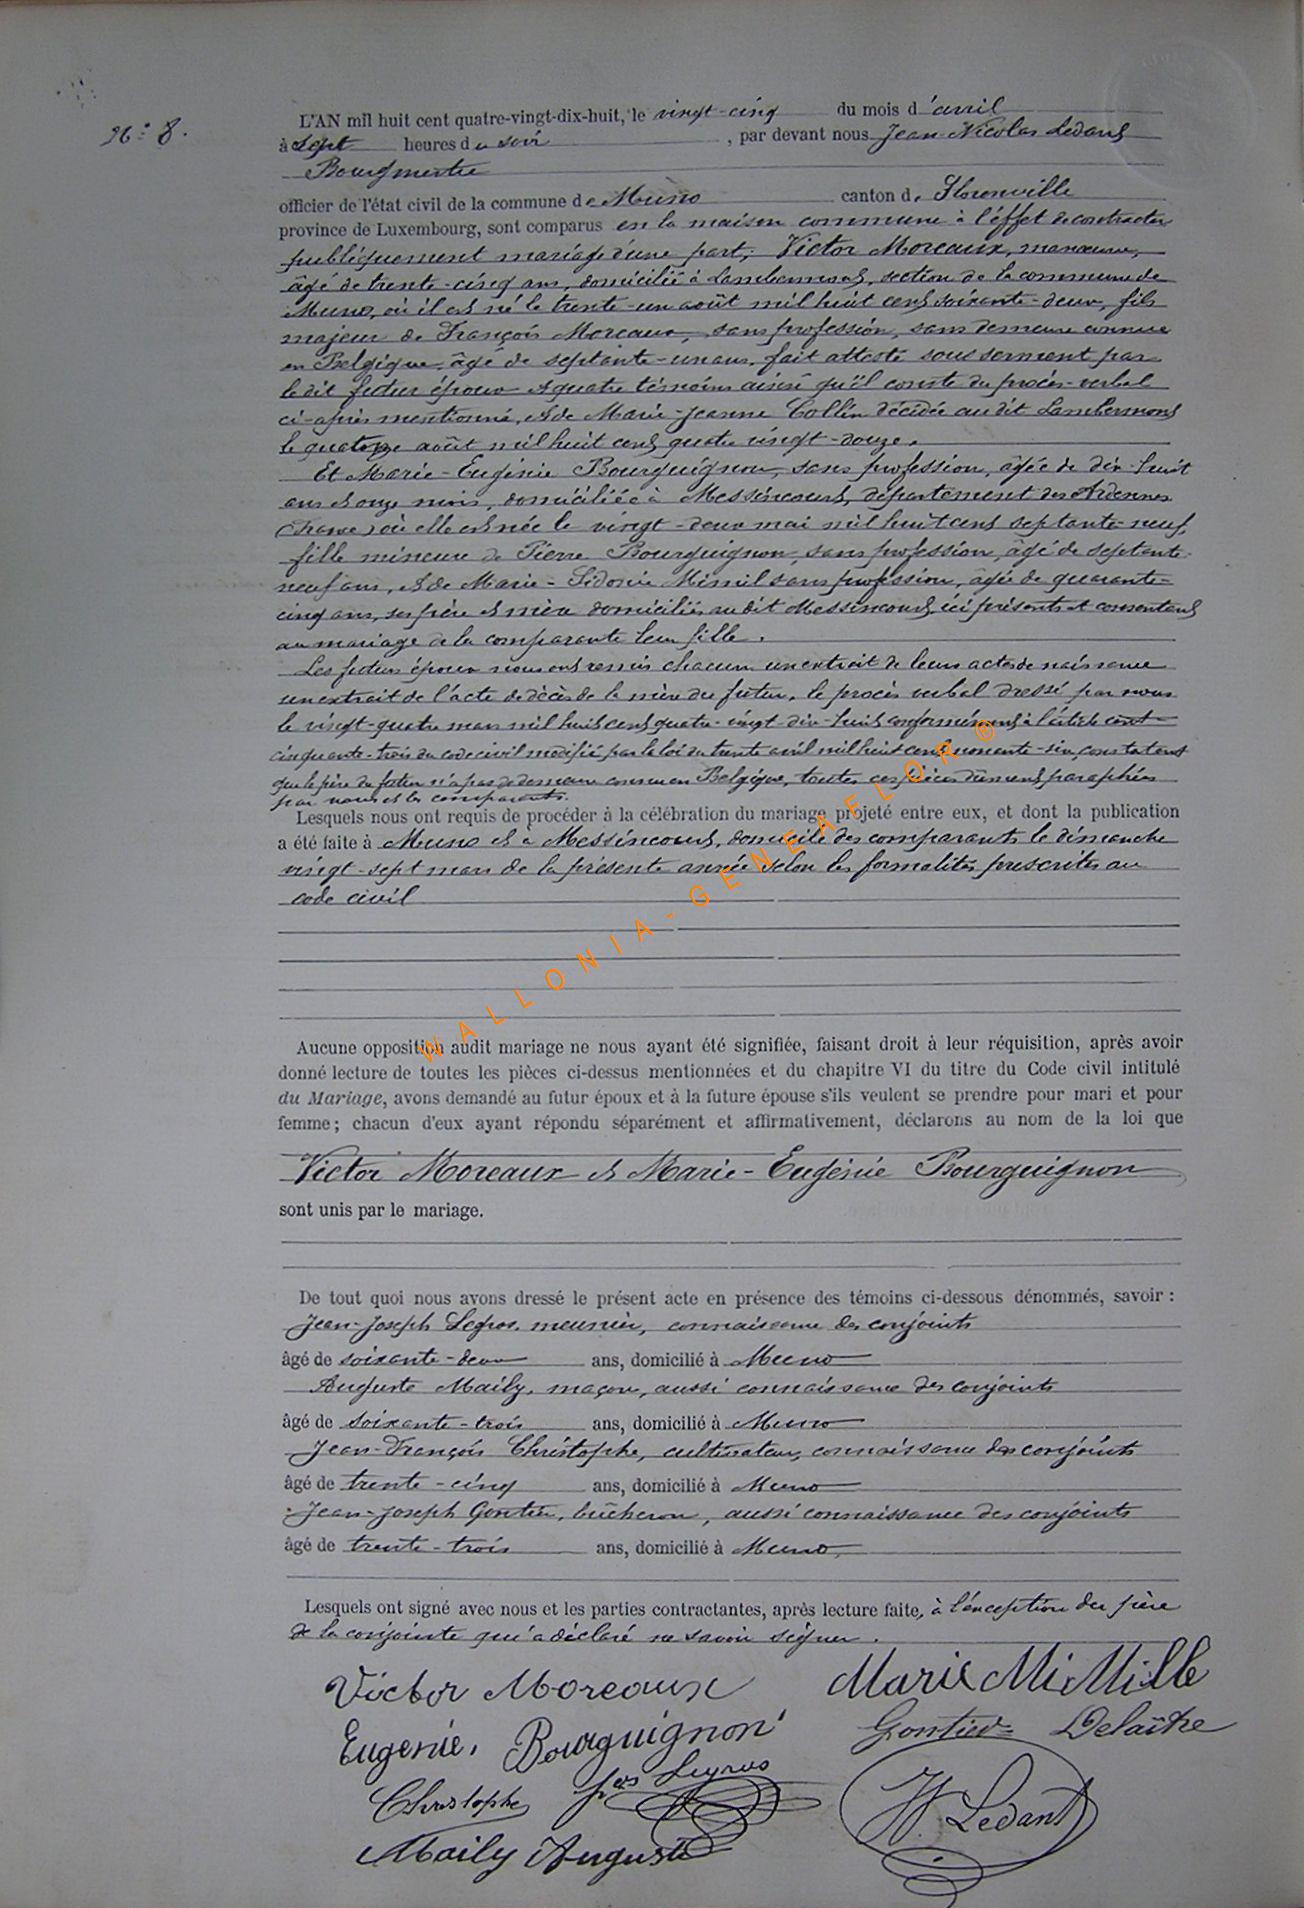 N° 8.
L'AN mil huit cent quatre-vingt-dix-huit, le vingt-cinq du mois d'avril
à sept heures du soir, par devant nous Jean-Nicolas Ledant
Bourgmestre
officier de l'état civil de la commune de Muno canton de Florenville
province de Luxembourg, sont comparus en la maison commune à l'effet de contracter
publiquement mariage d'une part; Victor Moreaux, manœuvre,
âgé de trente-cinq ans, domicilié à Lambermont, section de la commune de
Muno, où il est né le trente-un août mil huit cent soixante-deux, fils
majeur de François Moreaux, sans profession, sans demeure connue
en Belgique, âgé de septante-un ans, fait attesté sous serment par
le dit futur époux & quatre témoins ainsi qu'il conste du procès-verbal
ci-après mentionné, et de Marie-Jeanne Collin décédée au dit Lambermont
le quatorze août mil huit cent quatre vingt-douze.
Et Marie-Eugénie Bourguignon, sans profession, âgée de dix-huit
ans et onze mois, domiciliée à Messincourt, département des Ardennes
(France) où elle est née le vingt-deux mai mil huit cent septante-neuf,
fille mineure de Pierre Bourguignon, sans profession, âgé de septante-
neuf ans, et de Marie-Sidonie Mimil sans profession, âgée de quarante-
cinq ans, ses père et mère domiciliés au dit Messincourt, ici présents et consentant
au mariage de la comparante leur fille.
Les futurs époux nous ont remis chacun un extrait de leurs actes de naissance
un extrait de l'acte de décès de la mère du futur, le procès verbal dressé par nous
le vingt-quatre mars mil huit cent quatre-vingt-dix-huit conformément à l'article cent
cinquante-trois du code civil modifié par la loi du trente avril mil huit cent nonante-six, constatant
que le père du futur n'a pas de demeure connue en Belgique, toutes ces pièces dûment paraphées
par nous et les comparants.
Lesquels nous ont requis de procéder à la célébration du mariage projeté entre eux, et dont la publication
a été faite à Muno et à Messincourt, domicile des comparants le dimanche
vingt-sept mars de la présente année selon les formalités prescrites au
code civil
WALLONIA-GENEAFLOR ®
Aucune opposition audit mariage ne nous ayant été signifiée, faisant droit à leur réquisition, après avoir
donné lecture de toutes les pièces ci-dessus mentionnées et du chapitre VI du titre du Code civil intitulé
du Mariage, avons demandé au futur époux et à la future épouse s'ils veulent se prendre pour mari et pour
femme; chacun d'eux ayant répondu séparément et affirmativement, déclarons au nom de la loi que
Victor Moreaux et Marie-Eugénie Bourguignon
sont unis par le mariage.
De tout quoi nous avons dressé le présent acte en présence des témoins ci-dessous dénommés, savoir :
Jean-Joseph Legros, meunier, connaissance des conjoints
âgé de soixante-deux ans, domicilié à Muno
Auguste Maily, maçon, aussi connaissance des conjoints
âgé de soixante-trois ans, domicilié à Muno
Jean-François Christophe, cultivateur, connaissance des conjoints
âgé de trente-cinq ans, domicilié à Muno
Jean-Joseph Gontier, bûcheron, aussi connaissance des conjoints
âgé de trente-trois ans, domicilié à Muno,
Lesquels ont signé avec nous et les parties contractantes, après lecture faite, à l'exception du père
de la conjointe qui a déclaré ne savoir signer.
Victor Moreaux Marie MiMille
Eugénie Bourguignon Gontier Delaître
Christophe Legros
JN. Ledant
Maily Auguste